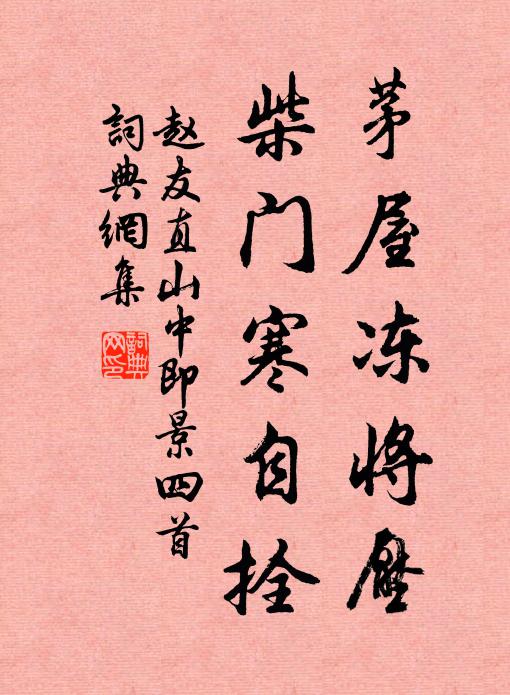 茅屋冻将压
柴门寒自拴
赵友直山中即景四首
詞典網集
詞典
网印